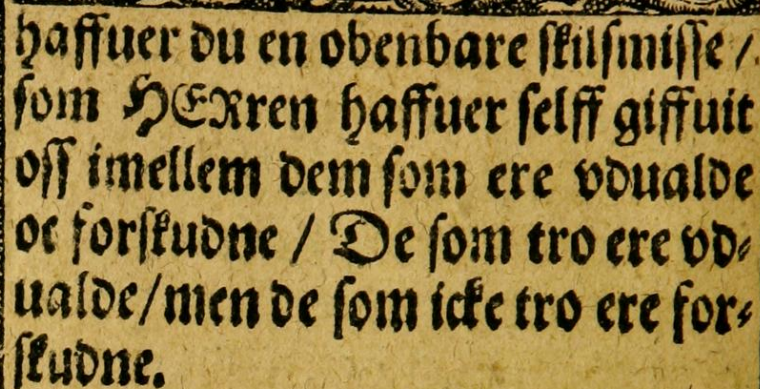 haffuer du en obenbare skilsmisse /
som HERren haffuer selff giffuit
oss imellem dem som ere vdualde
oc forskudne / De som tro ere vd⸗
ualde/men de som icke tro ere for⸗
skudne.